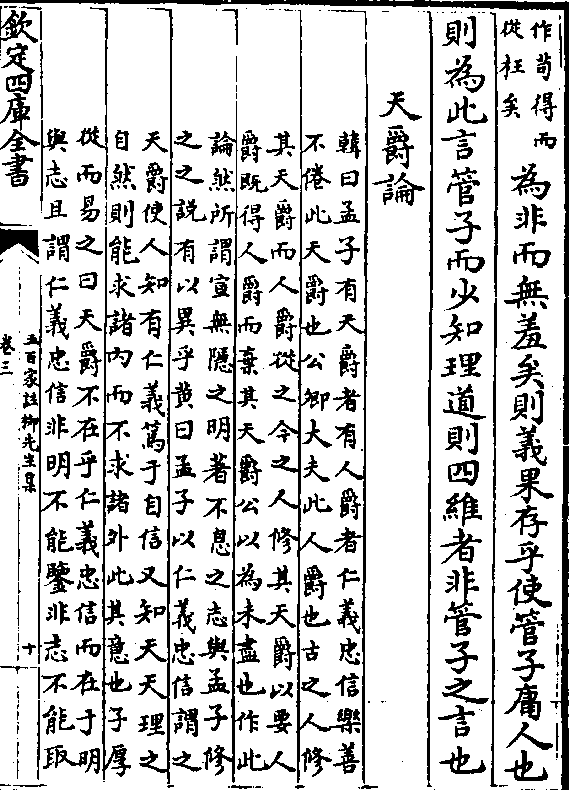 作苟得而
從枉矣
為非而無羞矣則義果存乎使管子庸人也
則為此言管子而少知理道則四維者非管子之言也
天爵論
韓曰孟子有天爵者有人爵者仁義忠信樂善
不倦此天爵也公卿大夫此人爵也古之人修
其天爵而人爵從之今之人修其天爵以要人
爵既得人爵而棄其天爵公以為未盡也作此
論然所謂宣無隱之明著不息之志與孟子修
之之説有以異乎黄曰孟子以仁義忠信謂之
天爵使人知有仁義篤于自信又知天天理之
自然則能求諸内而不求諸外此其意也子厚
從而易之曰天爵不在乎仁義忠信而在于明
與志且謂仁義忠信非明不能鑒非志不能取
欽定四庫全書
五百家註柳先生集
卷三
十